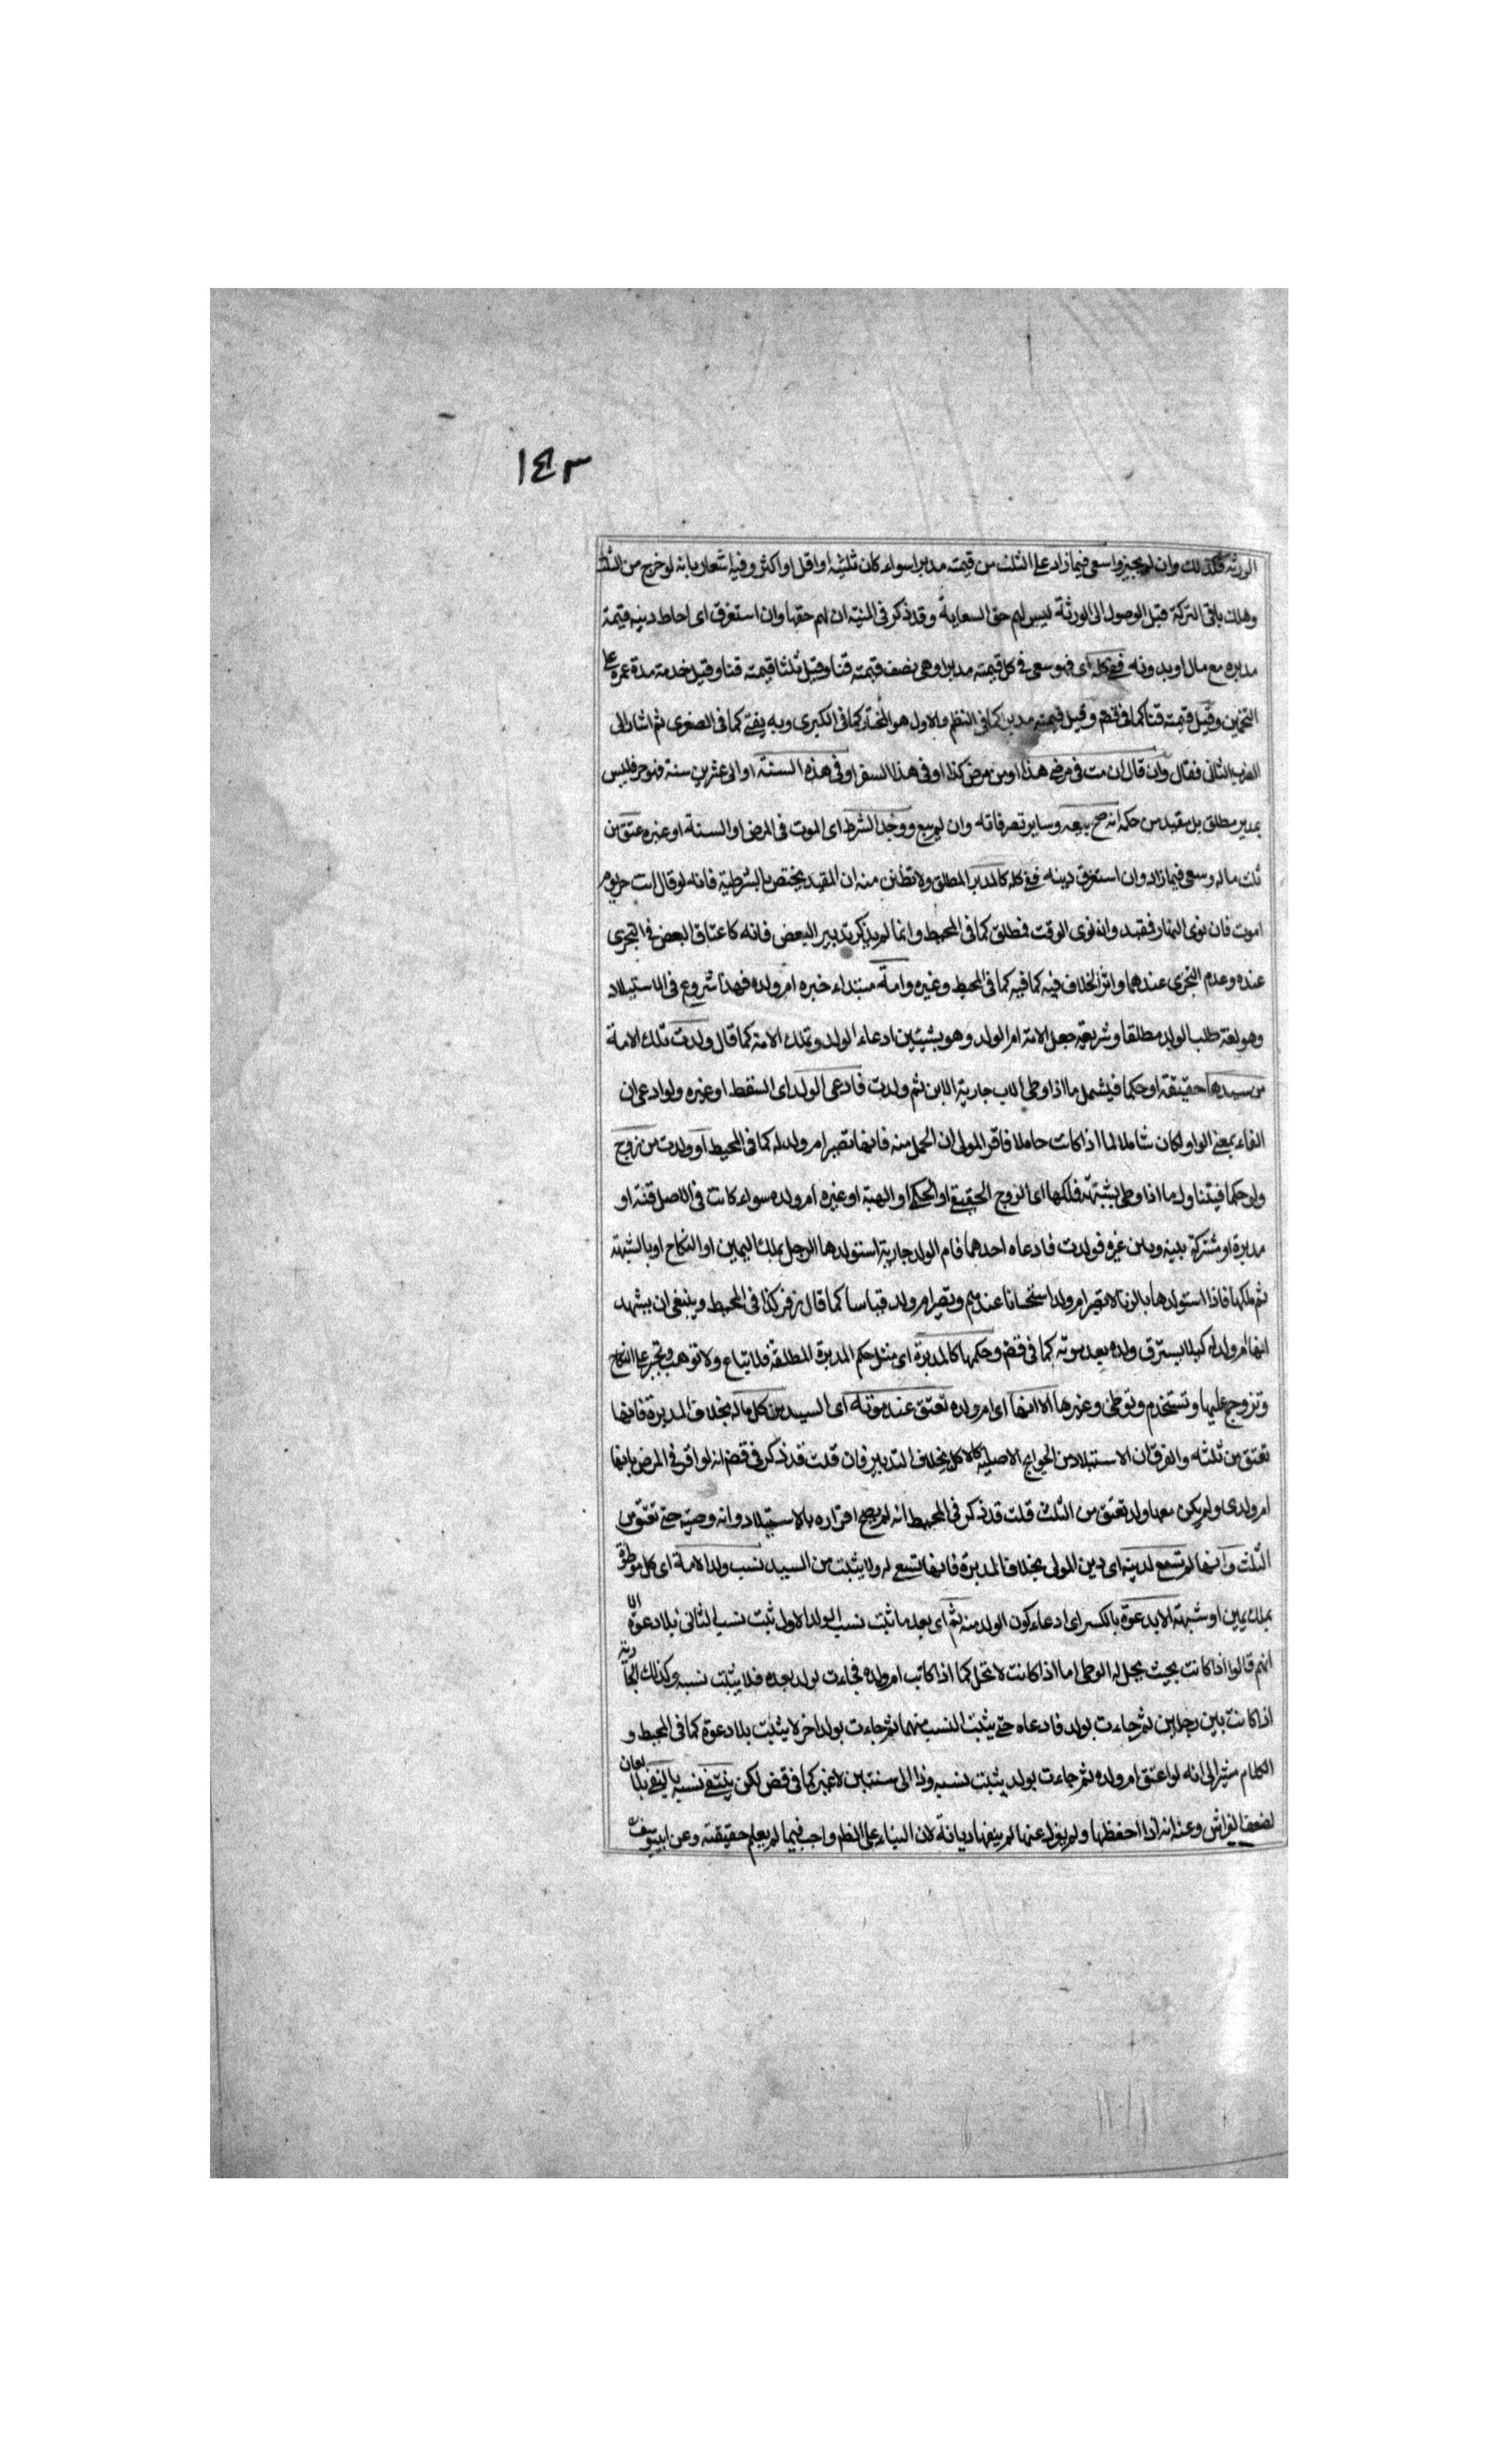 ١٤٣
الورثة فكذلك وان لم يجيزوا سعى فيما زاد على الثلث من قيمته مدبرا سواء كان ثلثيه او اقل او اكثر وفيه اشعار بانه لو خرج من الثلث
وهلك باقى التركة قبل الوصول الى الورثة ليس لهم حق السعاية وقد ذكر فى المنية ان لهم حقها وان استغرق اى احاط دينه قيمة
مدبره مع مال او بدونه ففى كله اى فهو سعى فى كل قيمته مدبرا وهى نصف قيمته قنا وقيل ثلثا قيمته قنا وقيل خدمة مدة عمره على
التخمين وقيل قيمته قنا كما فى قضخ وقيل قيمته مدبرا كما فى النظم والاول هو المختار كما فى الكبرى وبه يفتى كما فى الصغرى ثم اشار الى
الضرب الثانى فقال وان قال ان مت فى مرضى هذا او من مرض كذا او فى هذا السفر او فى هذه السنة او الى عشرين سنة فهو حر فليس
بمدبر مطلق بل مقيد من حكمه انه صح بيعه وساير تصرفاته وان لم يبع ووجد الشرط اى الموت فى المرض او السنة او غيره عتق من
ثلث ماله وسعى فيما زاد وان استغرق دينه ففى كله كالمدبر المطلق ولا تظنن منه ان المقيد يختص بالشرطية فانه لو قال انت حر يوم
اموت فان نوى النهار فمقيد وان نوى الوقت فمطلق كما فى المحيط وانما لم يذكر تدبير البعض فانه كاعتاق البعض فى التجزى
عنده وعدم التجزى عندهما واثر الخلاف فيه كما فيه كما فى المحيط وغيره وامة مبتداء خبره ام ولده فهذا شروع فى الاستيلاد
وهو لغة طلب الولد مطلقا وشريعة جعل الامة ام الولد وهو بشيئين ادعاء الولد وتملك الامة كما قال ولدت تلك الامة
من سيدها حقيقة او حكما فيشمل ما اذا وطى الاب جارية الابن ثم ولدت فادعى الولد اى السقط او غيره ولو ادعى ان
الفاء بمعنى الواو لكان شاملا لما اذا كانت حاملا فاقر المولى ان الحمل منه فانها تصير ام ولد له كما فى المحيط او ولدت من زوج
ولو حكما فيتناول ما اذا وطى بشبهة فملكها اى الزوج الحقيقى او الحكمى او الهبة او غيره ام ولده سواء كانت فى الاصل قنة او
مدبرة او مشتركة بينه وبين غيره فولدت فادعاه احدهما فام الولد جارية استولدها الرجل بملك اليمين او النكاح او بالشبهة
ثم ملكها فاذا استولدها بالزنا لا تصير ام ولد استحسانا عندهم وتصير ام ولد قياسا كما قال زفر كذا فى المحيط وينبغى ان يشهد
انها ام ولد له كيلا يسترق ولده بعد موته كما فى قضخ وحكمها كالمدبرة اى مثل حكم المدبرة المطلقة فلا تباع ولا توهب وتجبر على النكاح
وتزوج عليها وتستخدم وتوطى وغيرها الا انها اى ام ولده تعتق عند موته اى السيد من كل ماله بخلاف المدبرة فانها
تعتق من ثلثه والفرق ان الاستيلاد من الحوايج الاصلية كالاكل بخلاف التدبير فان قلت قد ذكر فى قضخ انه لو اقر فى المرض بانها
ام ولدى ولم يكن معها ولد تعتق من الثلث قلت قد ذكر فى المحيط انه لم يصح اقراره بالاستيلاد وانه وصية حتى تعتق من
الثلث وانها لم تسع لدينه اى دين المولى بخلاف المدبرة فانها تسعى له ولا يثبت من السيد نسب ولد الامة اى كل موطوءة
بملك يمين او شبهة الا بدعوة بالكسر اى ادعاء كون الولد منه ثم اى بعد ما ثبت نسب الولد الاول ثبت نسب الثانى بلا دعوة الا
انهم قالوا اذا كانت بحيث يحل له الوطى اما اذا كانت لا تحل كما اذا كاتب ام ولده فجاءت بولد بعده فلا يثبت نسبه وكذلك الجارية
اذا كانت بين رجلين ثم جاءت بولد فادعاه حتى يثبت النسب منهما ثم جاءت بولد اخر لا يثبت بلا دعوة كما فى المحيط و
الكلام مشير الى انه لو اعتق ام ولده ثم جاءت بولد يثبت نسبه وذا الى سنتين لا غير كما فى قضخ لكن ينتفى نسبه بالنفى بلا لعان
لضعف الفراش وعنه انه اذا احفظها ولم يعزل عنها لم ينفها ديانة لان البناء على الظاهر واجب فيما لم يعلم حقيقته وعن ابى يوسف